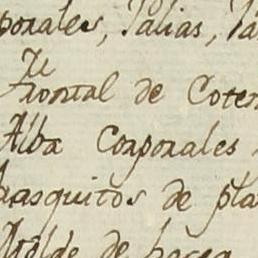 porales, Palias, Pa
Te
Frontal de Coten
Alba Corporales
rasquitos de pla
Molde de hacer